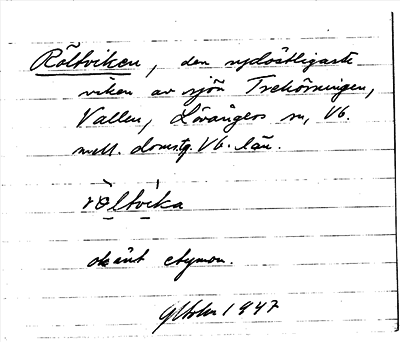 Röltviken, den sydöstligaste
viken av sjön Trehörningen,
Vallen, Lövångers sn, Vb.
mell. doms.g. Vb. län.
röltvika
okänt etymon.
1947